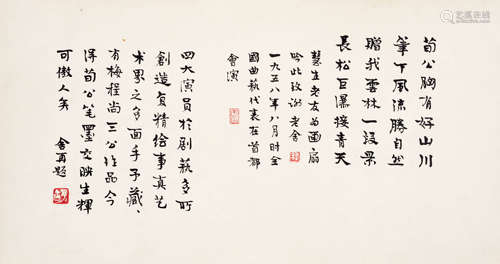 荀公胸有好山川
筆下風流勝自然
贈我雲林一段景
長松巨瀑接青天
慧生老友为画扇
吟此致谢 老舍
一九五八年八月时全
國曲藝代表在首都
會演
四大演员於剧藝多所
創造复精绘事真艺
术界之多面手予藏
有梅程尚三公作品今
得荀公笔墨交映生輝
可傲人矣
舍再題